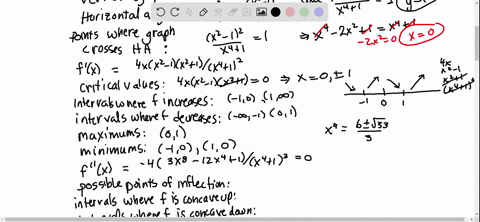 Horizontal a
x⁴+1
y=1
points where graph
crosses HA: (x²-1)²/x⁴+1 = 1 ⇒ x⁴-2x²+1 = x⁴+1
-2x²=0 x=0
f'(x) = 4x(x²-1)(x²+1)/(x⁴+1)²
critical values: 4x(x²-1)(x²+1)=0 ⇒ x=0,±1
4x
x²-1
x²+1
(x⁴+1)²
-1 0 1
intervals where f increases: (-1,0) (1,∞)
intervals where f decreases: (-∞,-1) (0,1)
maximums: (0,1)
minimums: (-1,0), (1,0)
x⁴ = 6±√33/3
f''(x) = -4(3x⁸-12x⁴+1)/(x⁴+1)³ = 0
possible points of inflection:
intervals where f is concave up:
intervals where f is concave down: